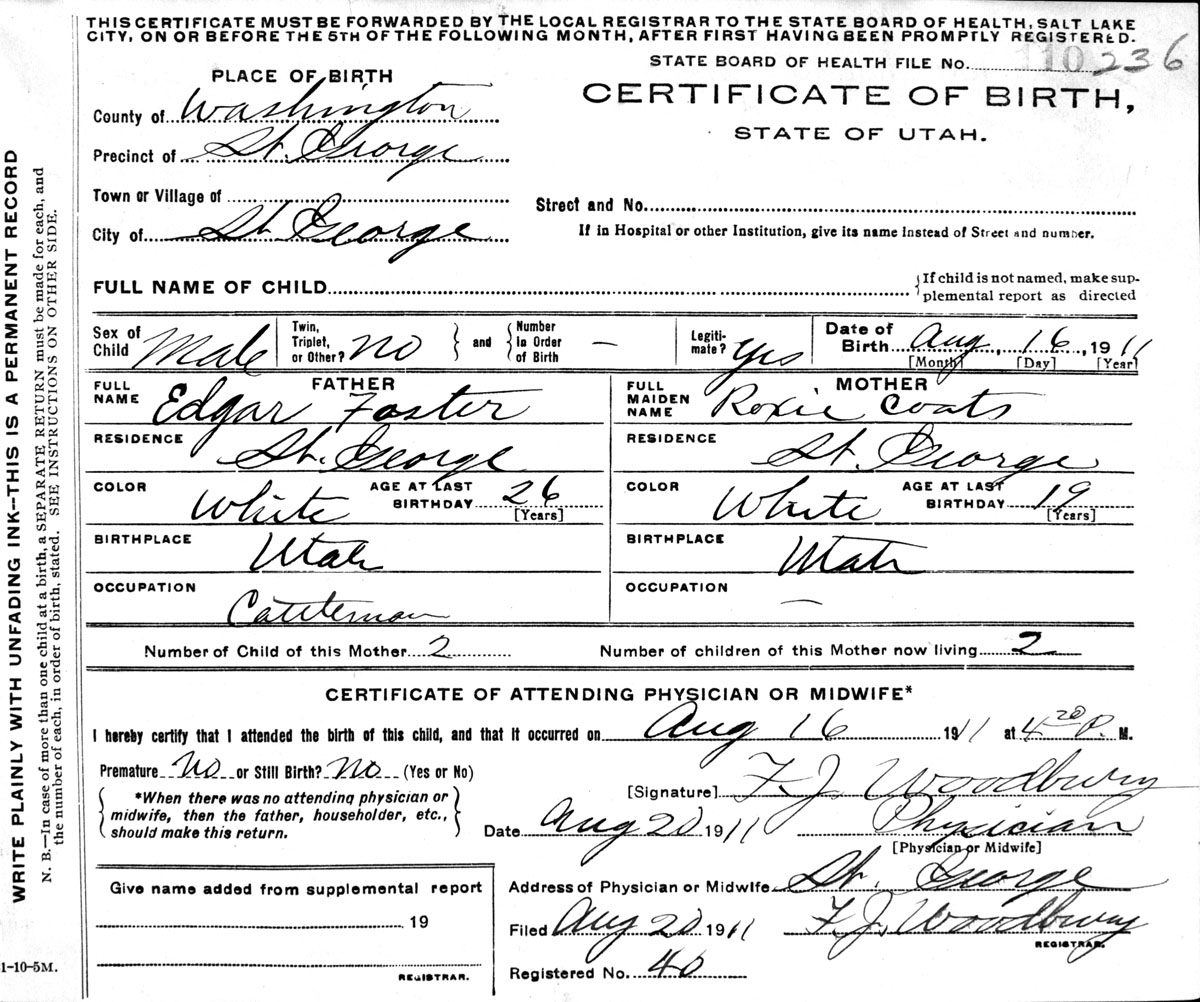 THIS CERTIFICATE MUST BE FORWARDED BY THE LOCAL REGISTRAR TO THE STATE BOARD OF HEALTH, SALT LAKE
CITY, ON OR BEFORE THE 5TH OF THE FOLLOWING MONTH, AFTER FIRST HAVING BEEN PROMPTLY REGISTERED.
STATE BOARD OF HEALTH FILE No. 110236
PLACE OF BIRTH
CERTIFICATE OF BIRTH,
STATE OF UTAH.
County of Washington
Precinct of St. George
Town or Village of
Street and No.
City of St. George
If in Hospital or other Institution, give its name instead of Street and number.
FULL NAME OF CHILD
{If child is not named, make sup-
plemental report as directed
Sex of Child Male Twin, Triplet, or Other? No } and { Number in Order of Birth — Legiti-mate? yes Date of Birth Aug, 16, 1911
[Month] [Day] [Year]
FATHER MOTHER
FULL NAME Edgar Foster FULL MAIDEN NAME Roxie Coats
RESIDENCE St. George RESIDENCE St. George
COLOR White AGE AT LAST BIRTHDAY 26 [Years] COLOR White AGE AT LAST BIRTHDAY 19 [Years]
BIRTHPLACE Utah BIRTHPLACE Utah
OCCUPATION Cattleman OCCUPATION —
Number of Child of this Mother 2 Number of children of this Mother now living 2
CERTIFICATE OF ATTENDING PHYSICIAN OR MIDWIFE*
I hereby certify that I attended the birth of this child, and that it occurred on Aug 16 1911 at 4 20 P. M.
Premature No or Still Birth? No (Yes or No)
[Signature] F. J. Woodbury
{ *When there was no attending physician or
midwife, then the father, householder, etc.,
should make this return. }
Date Aug 20 1911 Physician
[Physician or Midwife]
Give name added from supplemental report
19
REGISTRAR.
Address of Physician or Midwife St. George
Filed Aug 20 1911 F. J. Woodbury
REGISTRAR.
Registered No. 40
WRITE PLAINLY WITH UNFADING INK--THIS IS A PERMANENT RECORD
N. B.—In case of more than one child at a birth, a SEPARATE RETURN must be made for each, and
the number of each, in order of birth, stated. SEE INSTRUCTIONS ON OTHER SIDE.
1-10-5M.